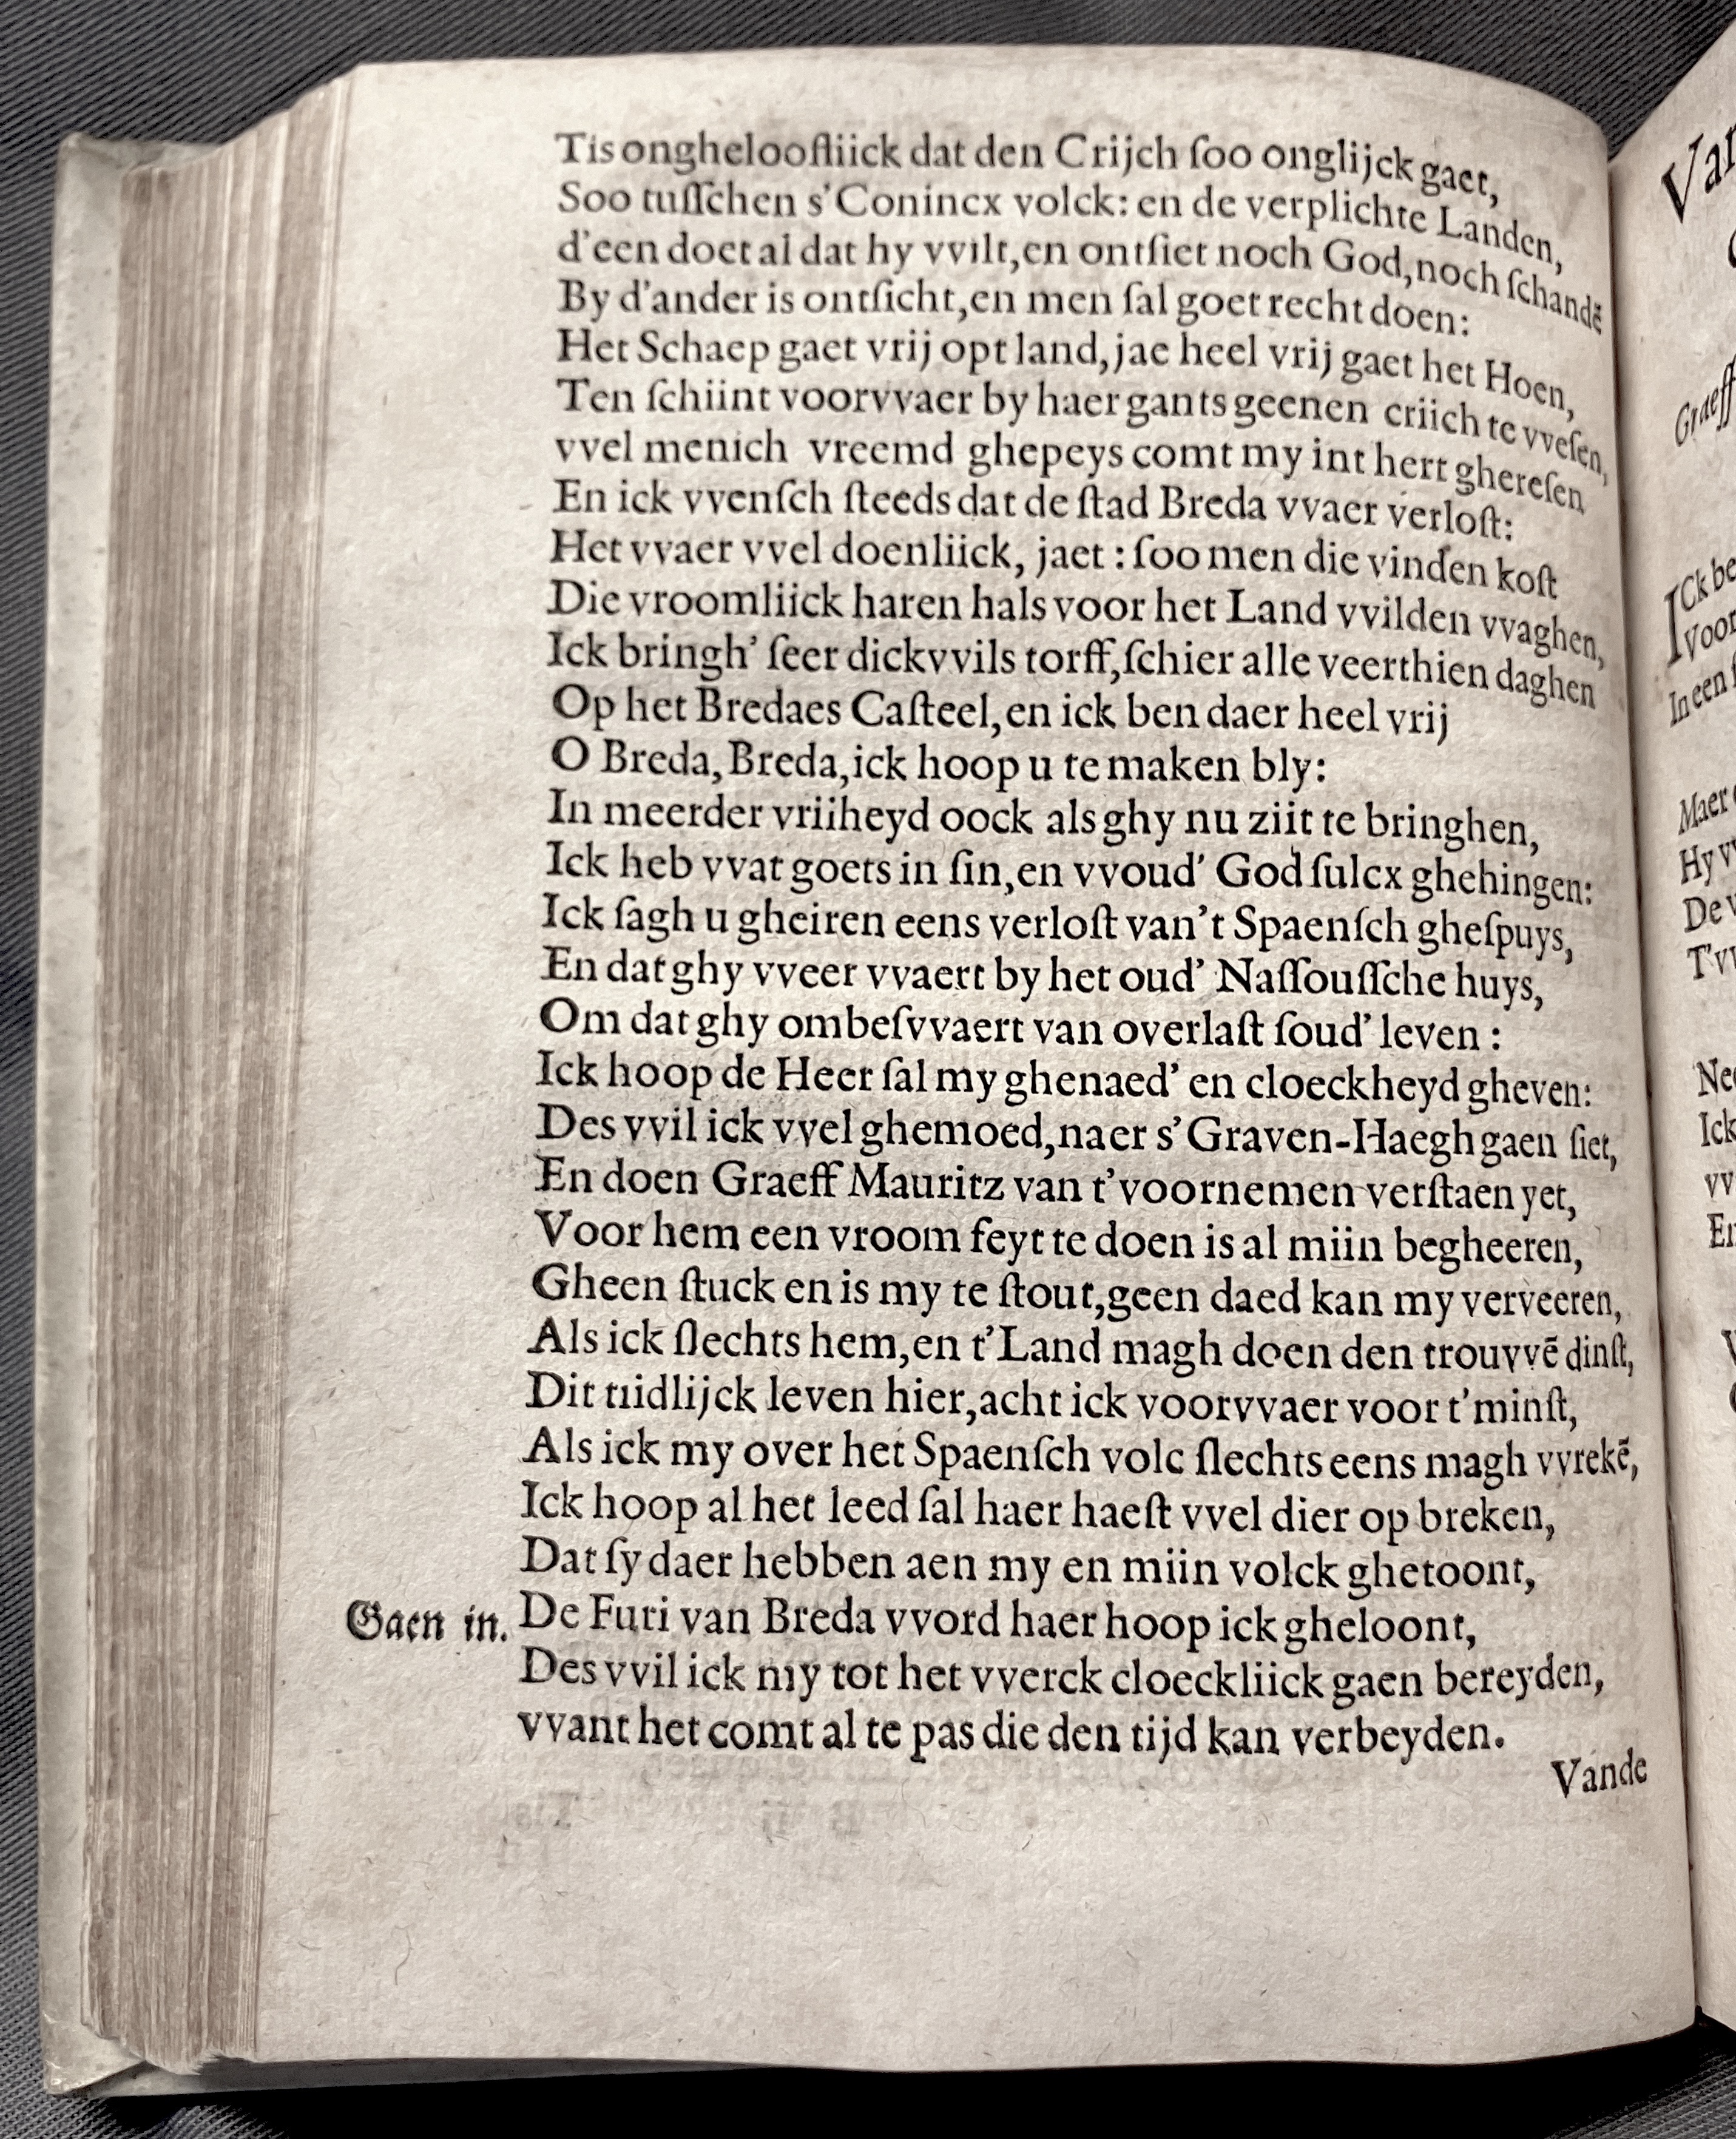 Tis onghelooſliick dat den Crijch ſoo onglijck gaet,
Soo tuſſchen s'Conincx volck: en de verplichte Landen,
d'een doet al dat hy vvilt, en ontſiet noch God, noch ſchandē
By d'ander is ontſicht, en men ſal goet recht doen:
Het Schaep gaet vrij opt land, jae heel vrij gaet het Hoen,
Ten ſchiint voorvvaer by haer gants geenen criich te vveſen,
vvel menich vreemd ghepeys comt my int hert ghereſen
En ick vvenſch ſteeds dat de ſtad Breda vvaer verloſt:
Het vvaer vvel doenliick, jaet: ſoo men die vinden koſt
Die vroomliick haren hals voor het Land vvilden vvaghen,
Ick bringh' ſeer dickvvils torff, ſchier alle veerthien daghen
Op het Bredaes Caſteel, en ick ben daer heel vrij
O Breda, Breda, ick hoop u te maken bly:
In meerder vriiheyd oock als ghy nu ziit te bringhen,
Ick heb vvat goets in ſin, en vvoud' God ſulcx ghehingen:
Ick ſagh u gheiren eens verloſt van't Spaenſch gheſpuys,
En dat ghy vveer vvaert by het oud' Naſſouſſche huys,
Om dat ghy ombeſvvaert van overlaſt ſoud' leven:
Ick hoop de Heer ſal my ghenaed' en cloeckheyd gheven:
Des vvil ick vvel ghemoed, naer s'Graven-Haegh gaen ſiet,
En doen Graeff Mauritz van t'voornemen verſtaen yet,
Voor hem een vroom feyt te doen is al miin begheeren,
Gheen ſtuck en is my te ſtout, geen daed kan my verveeren,
Als ick ſlechts hem, en t'Land magh doen den trouvvē dinſt,
Dit tiidlijck leven hier, acht ick voorvvaer voor t'minſt,
Als ick my over het Spaenſch volc ſlechts eens magh vvrekē,
Ick hoop al het leed ſal haer haeſt vvel dier op breken,
Dat ſy daer hebben aen my en miin volck ghetoont,
Gaen in. De Furi van Breda vvord haer hoop ick gheloont,
Des vvil ick my tot het vverck cloeckliick gaen bereyden,
vvant het comt al te pas die den tijd kan verbeyden.
Vande
Graeff
ICk be
voor
In een
Maer
Hy
De